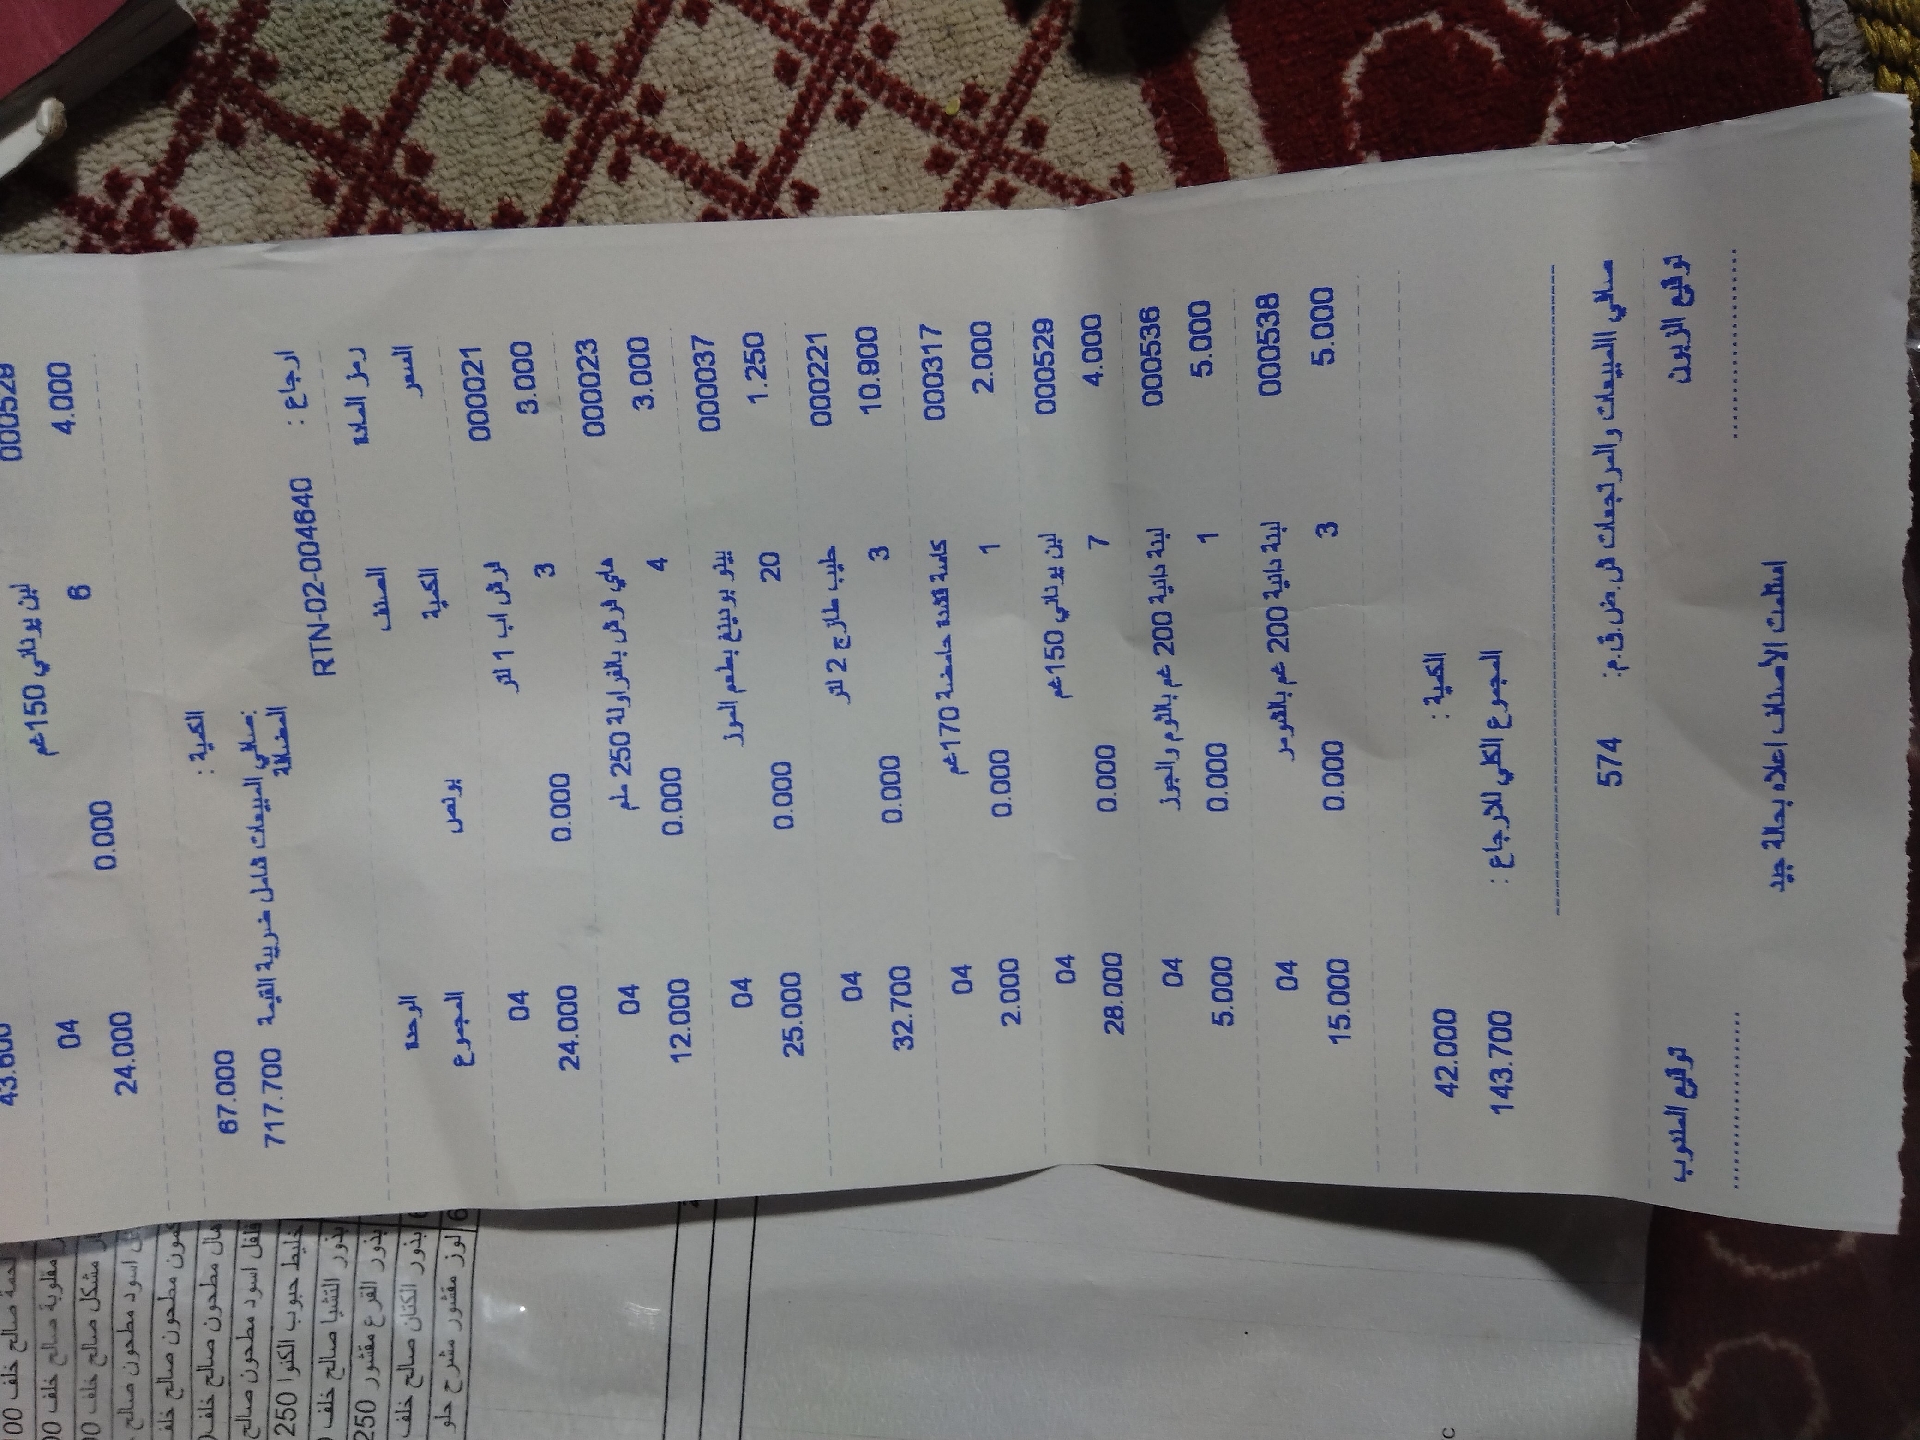 000529
لبن يوناني 150غم
4.000 6 0.000 24.000
04
43.600
الكمية : 67.000
صافي المبيعات شامل ضريبة القيمة المضافة: 717.700
ارجاع : RTN-02-004640
رمز المادة الصنف الوحدة
السعر الكمية بونص المجموع
000021 فرش اب 1 لتر 04
3.000 3 0.000 24.000
000023 ملي فرش بالفراولة 250 ملم 04
3.000 4 0.000 12.000
000037 بيتو بودينغ بطعم الموز 04
1.250 20 0.000 25.000
000221 حليب طازج 2 لتر 04
10.900 3 0.000 32.700
000317 كاسة قشدة حامضة 170غم 04
2.000 1 0.000 2.000
000529 لبن يوناني 150غم 04
4.000 7 0.000 28.000
000536 لبنة دانية 200 غم بالثوم والجوز 04
5.000 1 0.000 5.000
000538 لبنة دانية 200 غم بالشومر 04
5.000 3 0.000 15.000
الكمية : 42.000
المجموع الكلي للارجاع : 143.700
صافي المبيعات والمرتجعات ش.ض.ق.م: 574
توقيع الزبون توقيع المندوب
استلمت الأصناف اعلاه بحالة جيد
مقلوبة صالح خلف
مشكل صالح خلف
اسود مطحون صالح
كمون مطحون صالح خلف
هال مطحون صالح خلف
فلفل اسود مطحون صالح
خليط حبوب الكنوا 250
بذور التشيا صالح خلف
بذور القرع مقشور 250
بذور الكتان صالح خلف
لوز مقشور مشرح حلو